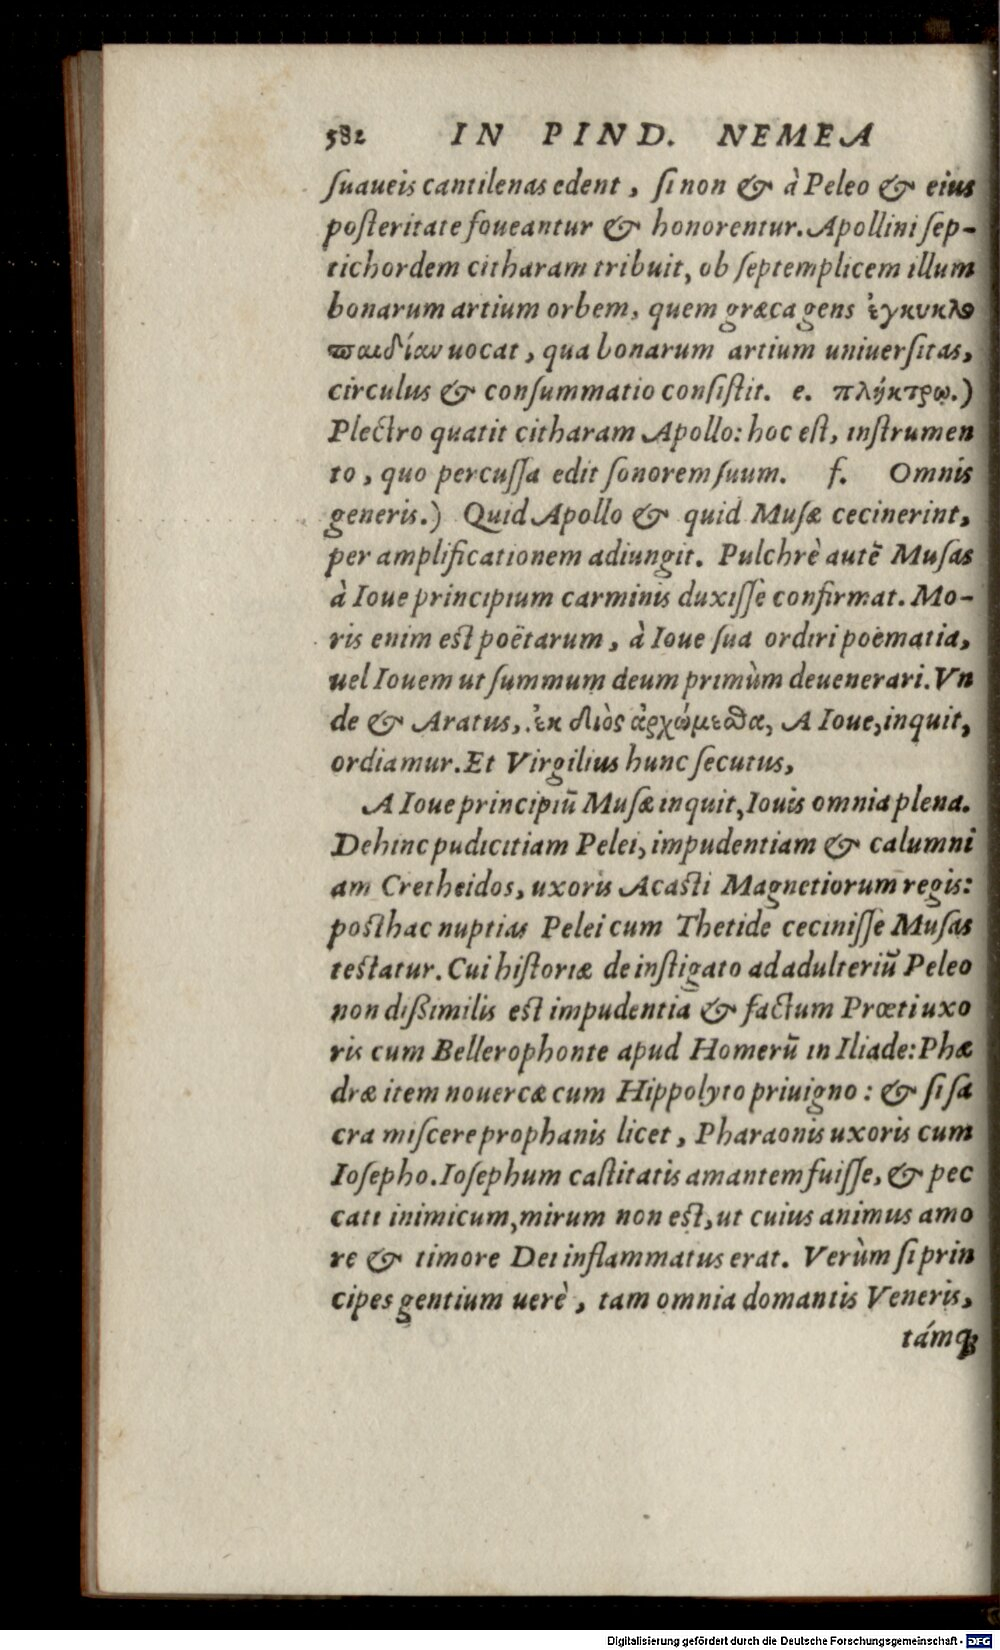 582 IN PIND. NEMEA
ſuaueis cantilenas edent, ſi non & à Peleo & eius
poſteritate foueantur & honorentur. Apollini ſep-
tichordem citharam tribuit, ob ſeptemplicem illum
bonarum artium orbem, quem græca gens ἐγκυκλο
παιδίαν uocat, qua bonarum artium uniuerſitas,
circulus & conſummatio conſiſtit. e. πλήκτρῳ.)
Plectro quatit citharam Apollo: hoc eſt, inſtrumen
to, quo percuſſa edit ſonorem ſuum. f. Omnis
generis.) Quid Apollo & quid Muſæ cecinerint,
per amplificationem adiungit. Pulchrè autē Muſas
à Ioue principium carminis duxiſſe confirmat. Mo-
ris enim eſt poëtarum, à Ioue ſua ordiri poëmatia,
uel Iouem ut ſummum deum primùm deuenerari. Vn
de & Aratus, ἐκ διὸς ἀρχώμεθα, A Ioue, inquit,
ordiamur. Et Virgilius hunc ſecutus,
A Ioue principiū Muſæ inquit, Iouis omnia plena.
Dehinc pudicitiam Pelei, impudentiam & calumni
am Cretheidos, uxoris Acaſti Magnetiorum regis:
poſthac nuptias Pelei cum Thetide ceciniſſe Muſas
teſtatur. Cui hiſtoriæ de inſtigato ad adulteriū Peleo
non dißimilis eſt impudentia & factum Prœti uxo
ris cum Bellerophonte apud Homerū in Iliade: Phæ
dræ item nouercæ cum Hippolyto priuigno: & ſi ſa
cra miſcere prophanis licet, Pharaonis uxoris cum
Ioſepho. Ioſephum caſtitatis amantem fuiſſe, & pec
cati inimicum, mirum non eſt, ut cuius animus amo
re & timore Dei inflammatus erat. Verùm ſi prin
cipes gentium uerè, tam omnia domantis Veneris,
támꝗ́;
Digitalisierung gefördert durch die Deutsche Forschungsgemeinschaft - DFG